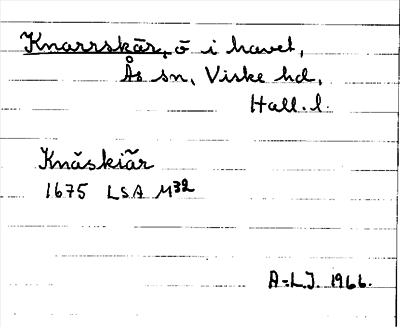 Knarrskär, ö i havet,
Ås sn, Viske hd,
Hall. l.
Knäskiär
1675 LSA M32
A-L.J. 1966.